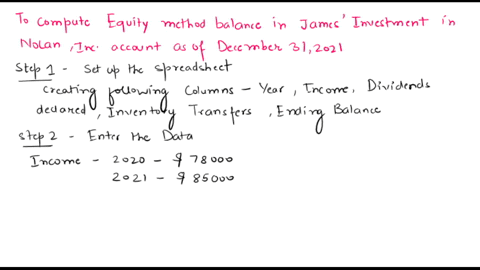 To compute Equity method balance in James' Investment in
Nolan, Inc. account as of December 31, 2021
Step 1 - Set up the spreadsheet
Creating following Columns - Year, Income, Dividends
declared, Inventory Transfers, Ending Balance
Step 2 - Enter the Data
Income - 2020 - $ 78000
2021 - $ 85000